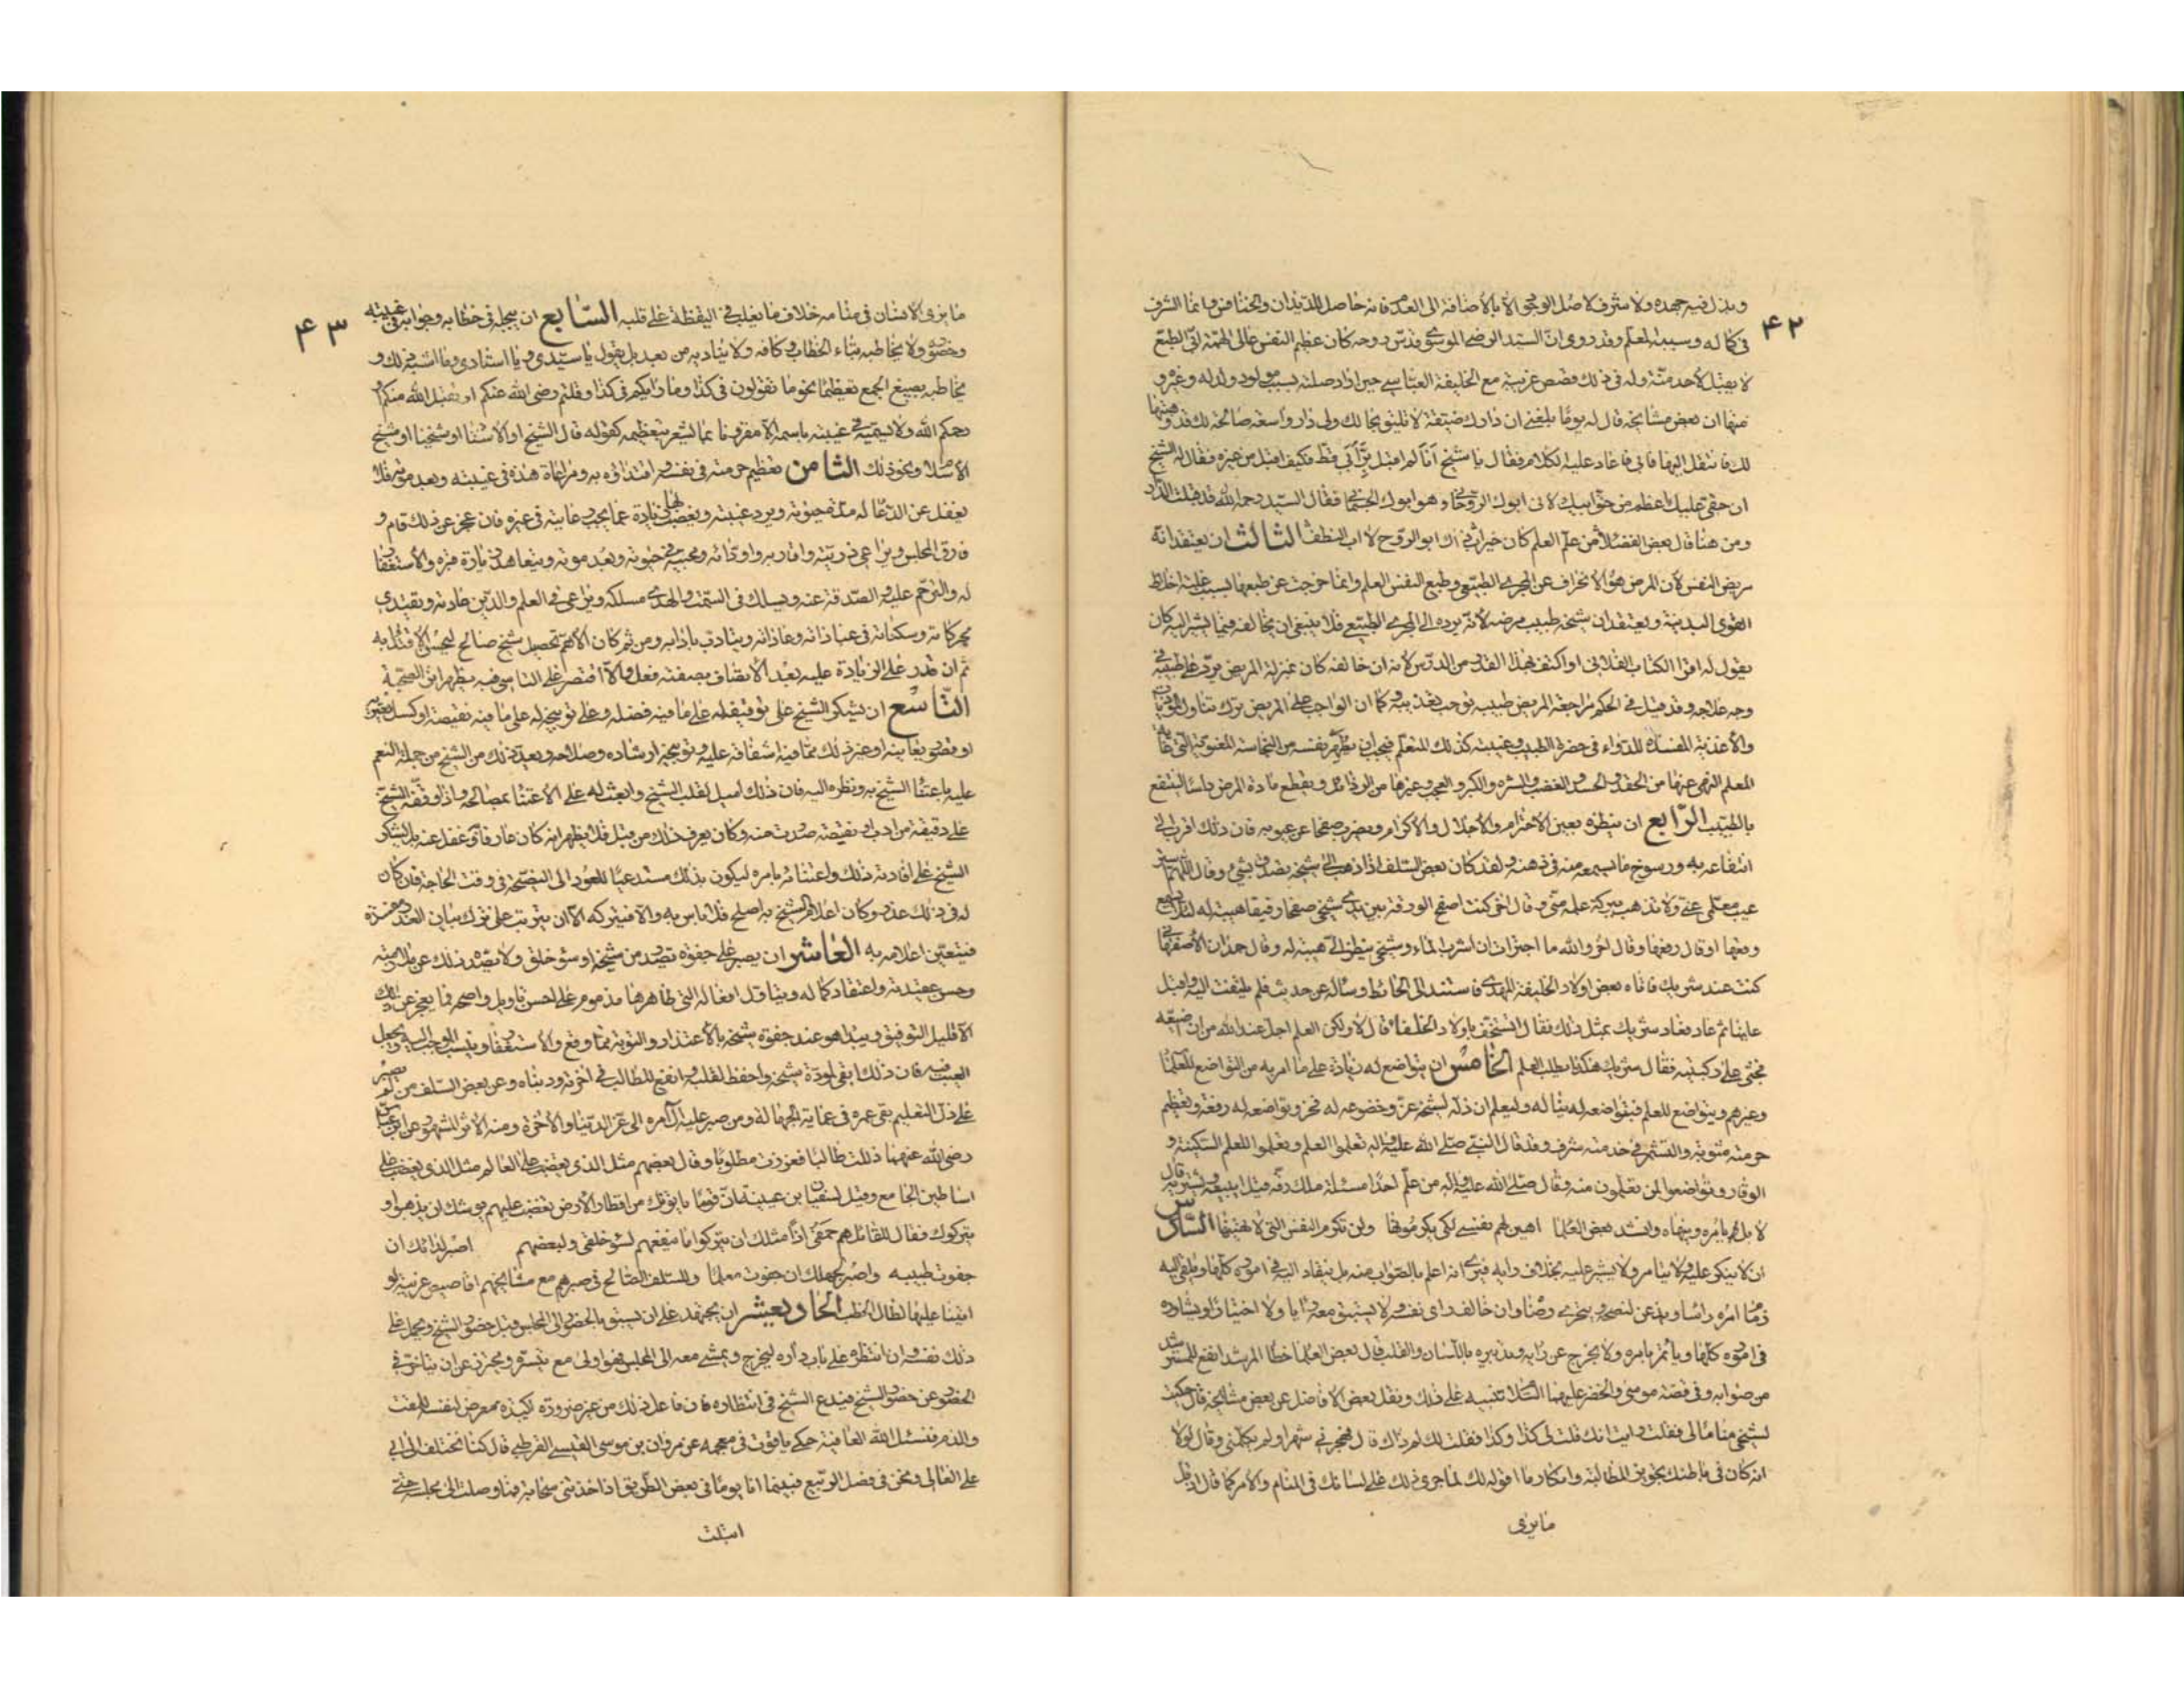 ۴۲
وبذل فيه جهده ولا شرف لاصل الوجود الا بالاضافة الى العدم فانه حاصل للديدان والخنافس وانما الشرف
فى كماله وسببه المعلم وقد روى ان السيد الرضى الموسوى قدس روحه كان عظيم النفس عالى الهمة ابى الطبع
لا يقبل لاحد منة وله فى ذلك قصص غريبة مع الخليفة العباسى حين اراد صلته بسبب مولود ولد له وغيره و
منها ان بعض مشايخه قال له يوما بلغنى ان دارك ضيقة لا تليق بحالك ولى دار واسعة صالحة لك قد وهبتها
لك فانتقل اليها فابى فاعاد عليه الكلام فقال يا شيخ انا لم اقبل بر ابى قط فكيف اقبل من غيره فقال له الشيخ
ان حقى عليك اعظم من حق ابيك لانى ابوك الروحانى وهو ابوك الجسمانى فقال السيد رحمه الله قد قبلت الدار
ومن هنا قال بعض الفضلاء من علم العلم كان خير اب ذاك ابو الروح لا اب النطف الثالث ان يعتقد انه
مريض النفس لان المرض هو الانحراف عن المجرى الطبيعى وطبع النفس العلم وانما خرجت عن طبعها بسبب غلبة اخلاط
القوى البدنية ويعتقد ان شيخه طبيب مرضه لانه يرده الى المجرى الطبيعى فلا ينبغى ان يخالفه فيما يشير اليه كان
يقول له اقرا الكتاب الفلانى او اكتف بهذا القدر من الدرس لانه ان خالفه كان بمنزلة المريض يرد على طبيبه فى
وجه علاجه وقد قيل فى الحكم مراجعة المريض طبيبه توجب تعذيبه وكما ان الواجب على المريض ترك تناول المؤذيات
والاغذية المفسدة للدواء فى حضرة الطبيب وغيبته كذلك المتعلم فيجب ان يطهر نفسه من النجاسة المعنوية التى غاية
المعلم النهى عنها من الحقد والحسد والغضب والشره والكبر والعجب وغيرها من الرذائل ويقطع مادة المرض راسا لينتفع
بالطبيب الرابع ان ينظره بعين الاحترام والاجلال والاكرام ويضرب صفحا عن عيوبه فان ذلك اقرب الى
انتفاعه به ورسوخ ما يسمعه منه فى ذهنه ولقد كان بعض السلف اذا ذهب الى شيخه تصدق بشىء وقال اللهم استر
عيب معلمى عنى ولا تذهب ببركة علمه منى وقال اخر كنت اصفح الورقة بين يدى شيخى صفحا رفيقا هيبة له لئلا يسمع
وقعها او قال رفعها وقال اخر والله ما اجترات ان اشرب الماء وشيخى ينظر الى هيبة له وقال حمدان الاصفهانى
كنت عند شريك فاتاه بعض اولاد الخليفة المهدى فاستند الى الحائط وساله عن حديث فلم يلتفت اليه واقبل
علينا ثم عاد فعاد شريك بمثل ذلك فقال اتستخف باولاد الخلفاء قال لا ولكن العلم اجل عند الله من ان اضيعه
فجثى على ركبتيه فقال شريك هكذا يطلب العلم الخامس ان يتواضع له زيادة على ما امر به من التواضع للعلماء
وغيرهم ويتواضع للعلم فبتواضعه له يناله وليعلم ان ذله لشيخه عز وخضوعه له فخر وتواضعه له رفعة وتعظيم
حرمته مثوبة والتشمر فى خدمته شرف وقد قال النبى صلى الله عليه واله تعلموا العلم وتعلموا للعلم السكينة و
الوقار وتواضعوا لمن تعلمون منه وقال صلى الله عليه واله من علم احدا مسئلة ملك رقه قيل ايبيعه ويشتريه قال
لا بل يامره وينهاه وانشد بعض العلماء اهين لهم نفسى لكى يكرمونها ولن تكرم النفس التى لا تهينها السادس
ان لا ينكر عليه ولا يتامر ولا يشير عليه بخلاف رايه فيرى انه اعلم بالصواب منه بل ينقاد اليه فى اموره كلها ويلقى اليه
زمام امره راسا ويذعن لنصحه ويتحرى رضاه وان خالف راى نفسه ولا يستبق معه رايا ولا اختيارا ويشاوره
فى اموره كلها وياتمر بامره ولا يخرج عن رايه وتدبيره باللسان والقلب قال بعض العلماء خطا المرشد انفع للمسترشد
من صوابه وفى قصة موسى والخضر عليهما السلام تنبيه على ذلك ونقل بعض الافاضل عن بعض مشايخه قال حكيت
لشيخى مناما لى فقلت رايت انك قلت لى كذا وكذا فقلت لك لم ذاك قال فهجرنى شهرا ولم يكلمنى وقال لولا
انه كان فى باطنك تجويز المطالبة وانكار ما اقوله لك لما جرى ذلك على لسانك فى المنام والامر كما قال اذ قل
ما يرى
۴۳
ما يرى الانسان فى منامه خلاف ما يغلب فى اليقظة على قلبه السابع ان يبجله فى خطابه وجوابه فى غيبته
وحضوره ولا يخاطبه بتاء الخطاب وكافه ولا يناديه من بعد بل يقول يا سيدى ويا استادى وما اشبه ذلك و
يخاطبه بصيغ الجمع تعظيما نحو ما تقولون فى كذا وما رايكم فى كذا وقلتم رضى الله عنكم او تقبل الله منكم او
رحمكم الله ولا يسميه فى غيبته باسمه الا مقرونا بما يشعر بتعظيمه كقوله قال الشيخ او الاستاد او شيخنا او شيخ
الاسلام ونحو ذلك الثامن تعظيم حرمته فى نفسه واقتداؤه به ومراعاة هذه فى غيبته وبعد موته فلا
يغفل عن الدعاء له مدة حيوته ويرد غيبته ويغضب لها زيادة عما يجب رعايته فى غيره فان عجز عن ذلك قام و
فارق المجلس ويراعى ذريته واقاربه واودائه ومحبيه فى حيوته وبعد موته ويتعاهد زيارة قبره والاستغفار
له والترحم عليه والصدقة عنه ويسلك فى السمت والهدى مسلكه ويراعى فى العلم والدين عادته ويقتدى
بحركاته وسكناته فى عباداته وعاداته ويتادب بادابه ومن ثم كان الاهم تحصيل شيخ صالح ليحسن الاقتداء به
ثم ان قدر على الزيادة عليه بعد الاتصاف بصفته فعل والا اقتصر على التاسى فبه يظهر اثر الصحبة
التاسع ان يشكر الشيخ على توفيقه له على ما فيه فضله وعلى توبيخه له على ما فيه نقيصة او كسل يعتريه
او قصور يعانيه او غير ذلك مما فيه اشفاقه عليه وتوبيخه ارشاده وصلاحه ويعد ذلك من الشيخ من جملة النعم
عليه باعتناء الشيخ به ونظره اليه فان ذلك اميل لقلب الشيخ وابعث له على الاعتناء بمصالحه واذا وقفه الشيخ
على دقيقة من ادب او نقيصة صدرت منه وكان يعرف ذلك من قبل فلا يظهر انه كان عارفا وغفل عنه بل يشكر
الشيخ على افادته ذلك واعتنائه بامره ليكون بذلك مستدعيا للعود الى النصيحة فى وقت الحاجة فان كان
له فى ذلك عذر وكان اعلام الشيخ به اصلح فلا باس به والا فيتركه الا ان يترتب على ترك بيان العذر مفسدة
فيتعين اعلامه به العاشر ان يصبر على جفوة تصدر من شيخه او سوء خلق ولا يصده ذلك عن ملازمته
وحسن عقيدته واعتقاد كماله ويتاول افعاله التى ظاهرها مذموم على احسن تاويل واصحه فما يعجز عن ذلك
الا قليل التوفيق ويبدا هو عند جفوة شيخه بالاعتذار والتوبة مما وقع والاستغفار وينسب الموجب اليه ويجعل
العتب فيه فان ذلك ابقى لمودة شيخه واحفظ لقلبه وانفع للطالب فى اخرته ودنياه وعن بعض السلف من لم يصبر
على ذل التعليم بقى عمره فى عماية الجهالة ومن صبر عليه ال امره الى عز الدنيا والاخرة ومنه الاثر المشهور عن ابن عباس
رضى الله عنهما ذللت طالبا فعززت مطلوبا وقال بعضهم مثل الذى يغضب على العالم مثل الذى يغضب على
اساطين الجامع وقيل لسفيان بن عيينة ان قوما ياتونك من اقطار الارض تغضب عليهم يوشك ان يذهبوا و
يتركوك فقال للقائل هم حمقى اذا مثلك ان يتركوا ما ينفعهم لسوء خلقى ولبعضهم اصبر لدائك ان
جفوت طبيبه واصبر لجهلك ان جفوت معلما وللسلف الصالح فى صبرهم مع مشايخهم اقاصيص غريبة لو
اتينا عليها لطال الخطب الحادى عشر ان يجتهد على ان يسبق بالحضور الى المجلس قبل حضور الشيخ ويحمل على
ذلك نفسه وان انتظره على باب داره ليخرج ويمشى معه الى المجلس فهو اولى مع تيسره ويحترز عن ان يتاخر فى
الحضور عن حضور الشيخ فيدع الشيخ فى انتظاره فان فاعل ذلك من غير ضرورة اكيدة معرض لنفسه للمقت
والذم فنسئل الله العافية حكى ياقوت فى معجمه عن هرون بن موسى القيسى القرطبى قال كنا نختلف الى ابى
على القالى ونحن فى فصل الربيع فبينما انا يوما فى بعض الطريق اذ اخذتنى سحابة فما وصلت الى مجلسه حتى
ابتلت